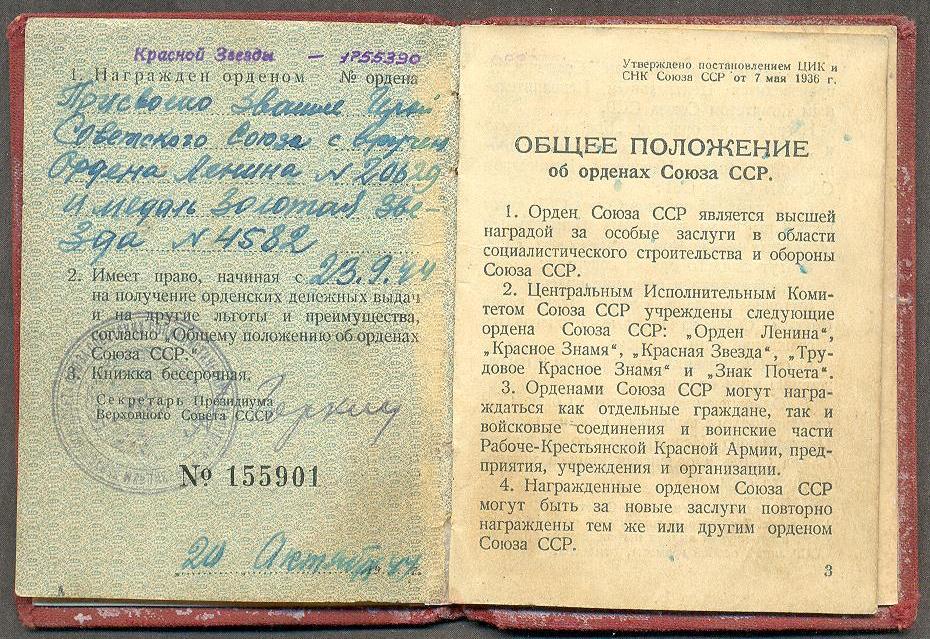 Красной Звезды — 1755390
1. Награжден орденом № ордена
Присвоено звание Героя
Советского Союза с вручен
Ордена Ленина N 20629
и медаль Золотая Зве-
зда N 4582
2. Имеет право, начиная с 23.9.44
на получение орденских денежных выдач
и на другие льготы и преимущества,
согласно „Общему положению об орденах
Союза ССР.“
3. Книжка бессрочная.
Секретарь Президиума
Верховного Совета СССР
№ 155901
20 Октября 44
Утверждено постановлением ЦИК и
СНК Союза ССР от 7 мая 1936 г.
ОБЩЕЕ ПОЛОЖЕНИЕ
об орденах Союза ССР.
1. Орден Союза ССР является высшей
наградой за особые заслуги в области
социалистического строительства и обороны
Союза ССР.
2. Центральным Исполнительным Коми-
тетом Союза ССР учреждены следующие
ордена Союза ССР: „Орден Ленина“,
„Красное Знамя“, „Красная Звезда“, „Тру-
довое Красное Знамя“ и „Знак Почета“.
3. Орденами Союза ССР могут награ-
ждаться как отдельные граждане, так и
войсковые соединения и воинские части
Рабоче-Крестьянской Красной Армии, пред-
приятия, учреждения и организации.
4. Награжденные орденом Союза ССР
могут быть за новые заслуги повторно
награждены тем же или другим орденом
Союза ССР.
3